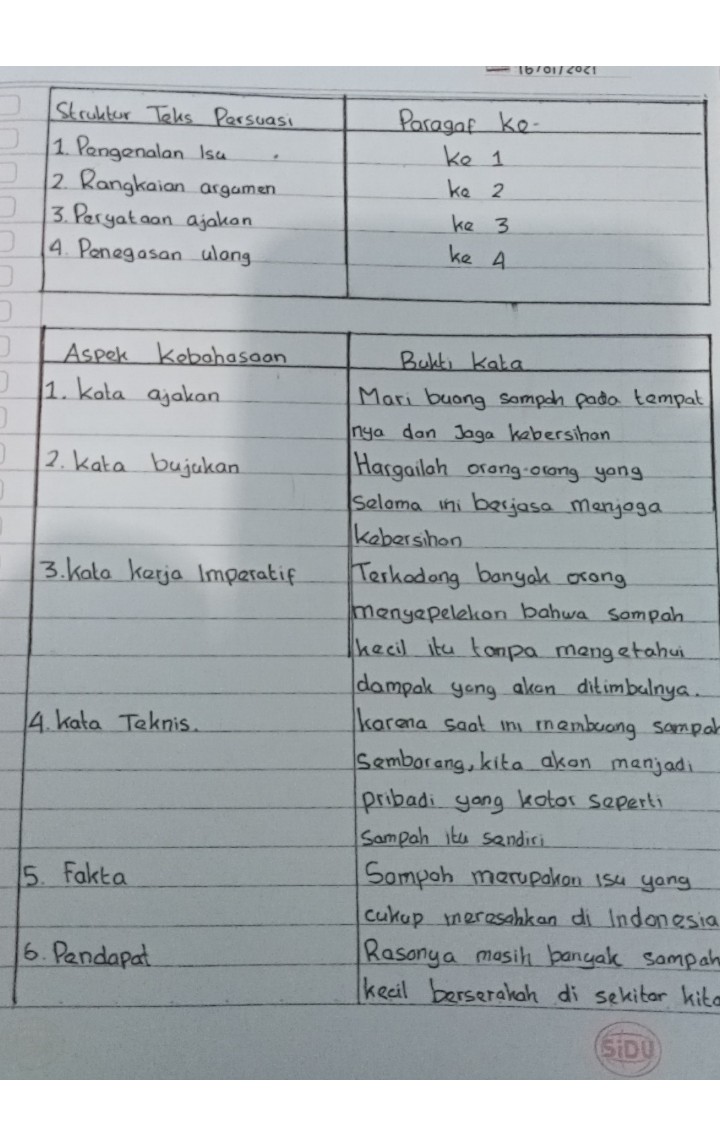 16/01/2021
Struktur Teks Persuasi Paragaf Ke-
1. Pengenalan Isu ke 1
2. Rangkaian argumen ke 2
3. Peryataan ajakan ke 3
4. Penegasan ulang ke 4
Aspek Kebahasaan Bukti Kata
1. Kata ajakan Mari buang sampah pada tempat
nya dan Jaga kebersihan
2. Kata bujukan Hargailah orang-orang yang
selama ini berjasa menjaga
kebersihan
3. Kata kerja Imperatif Terkadang banyak orang
menyepelekan bahwa sampah
kecil itu tanpa mengetahui
dampak yang akan ditimbulnya.
4. Kata Teknis. karena saat ini membuang sampah
Sembarang, kita akan menjadi
pribadi yang kotor seperti
Sampah itu sendiri
5. Fakta Sampah merupakan isu yang
cukup meresahkan di Indonesia
6. Pendapat Rasanya masih banyak sampah
kecil berserakah di sekitar kita
SiDU